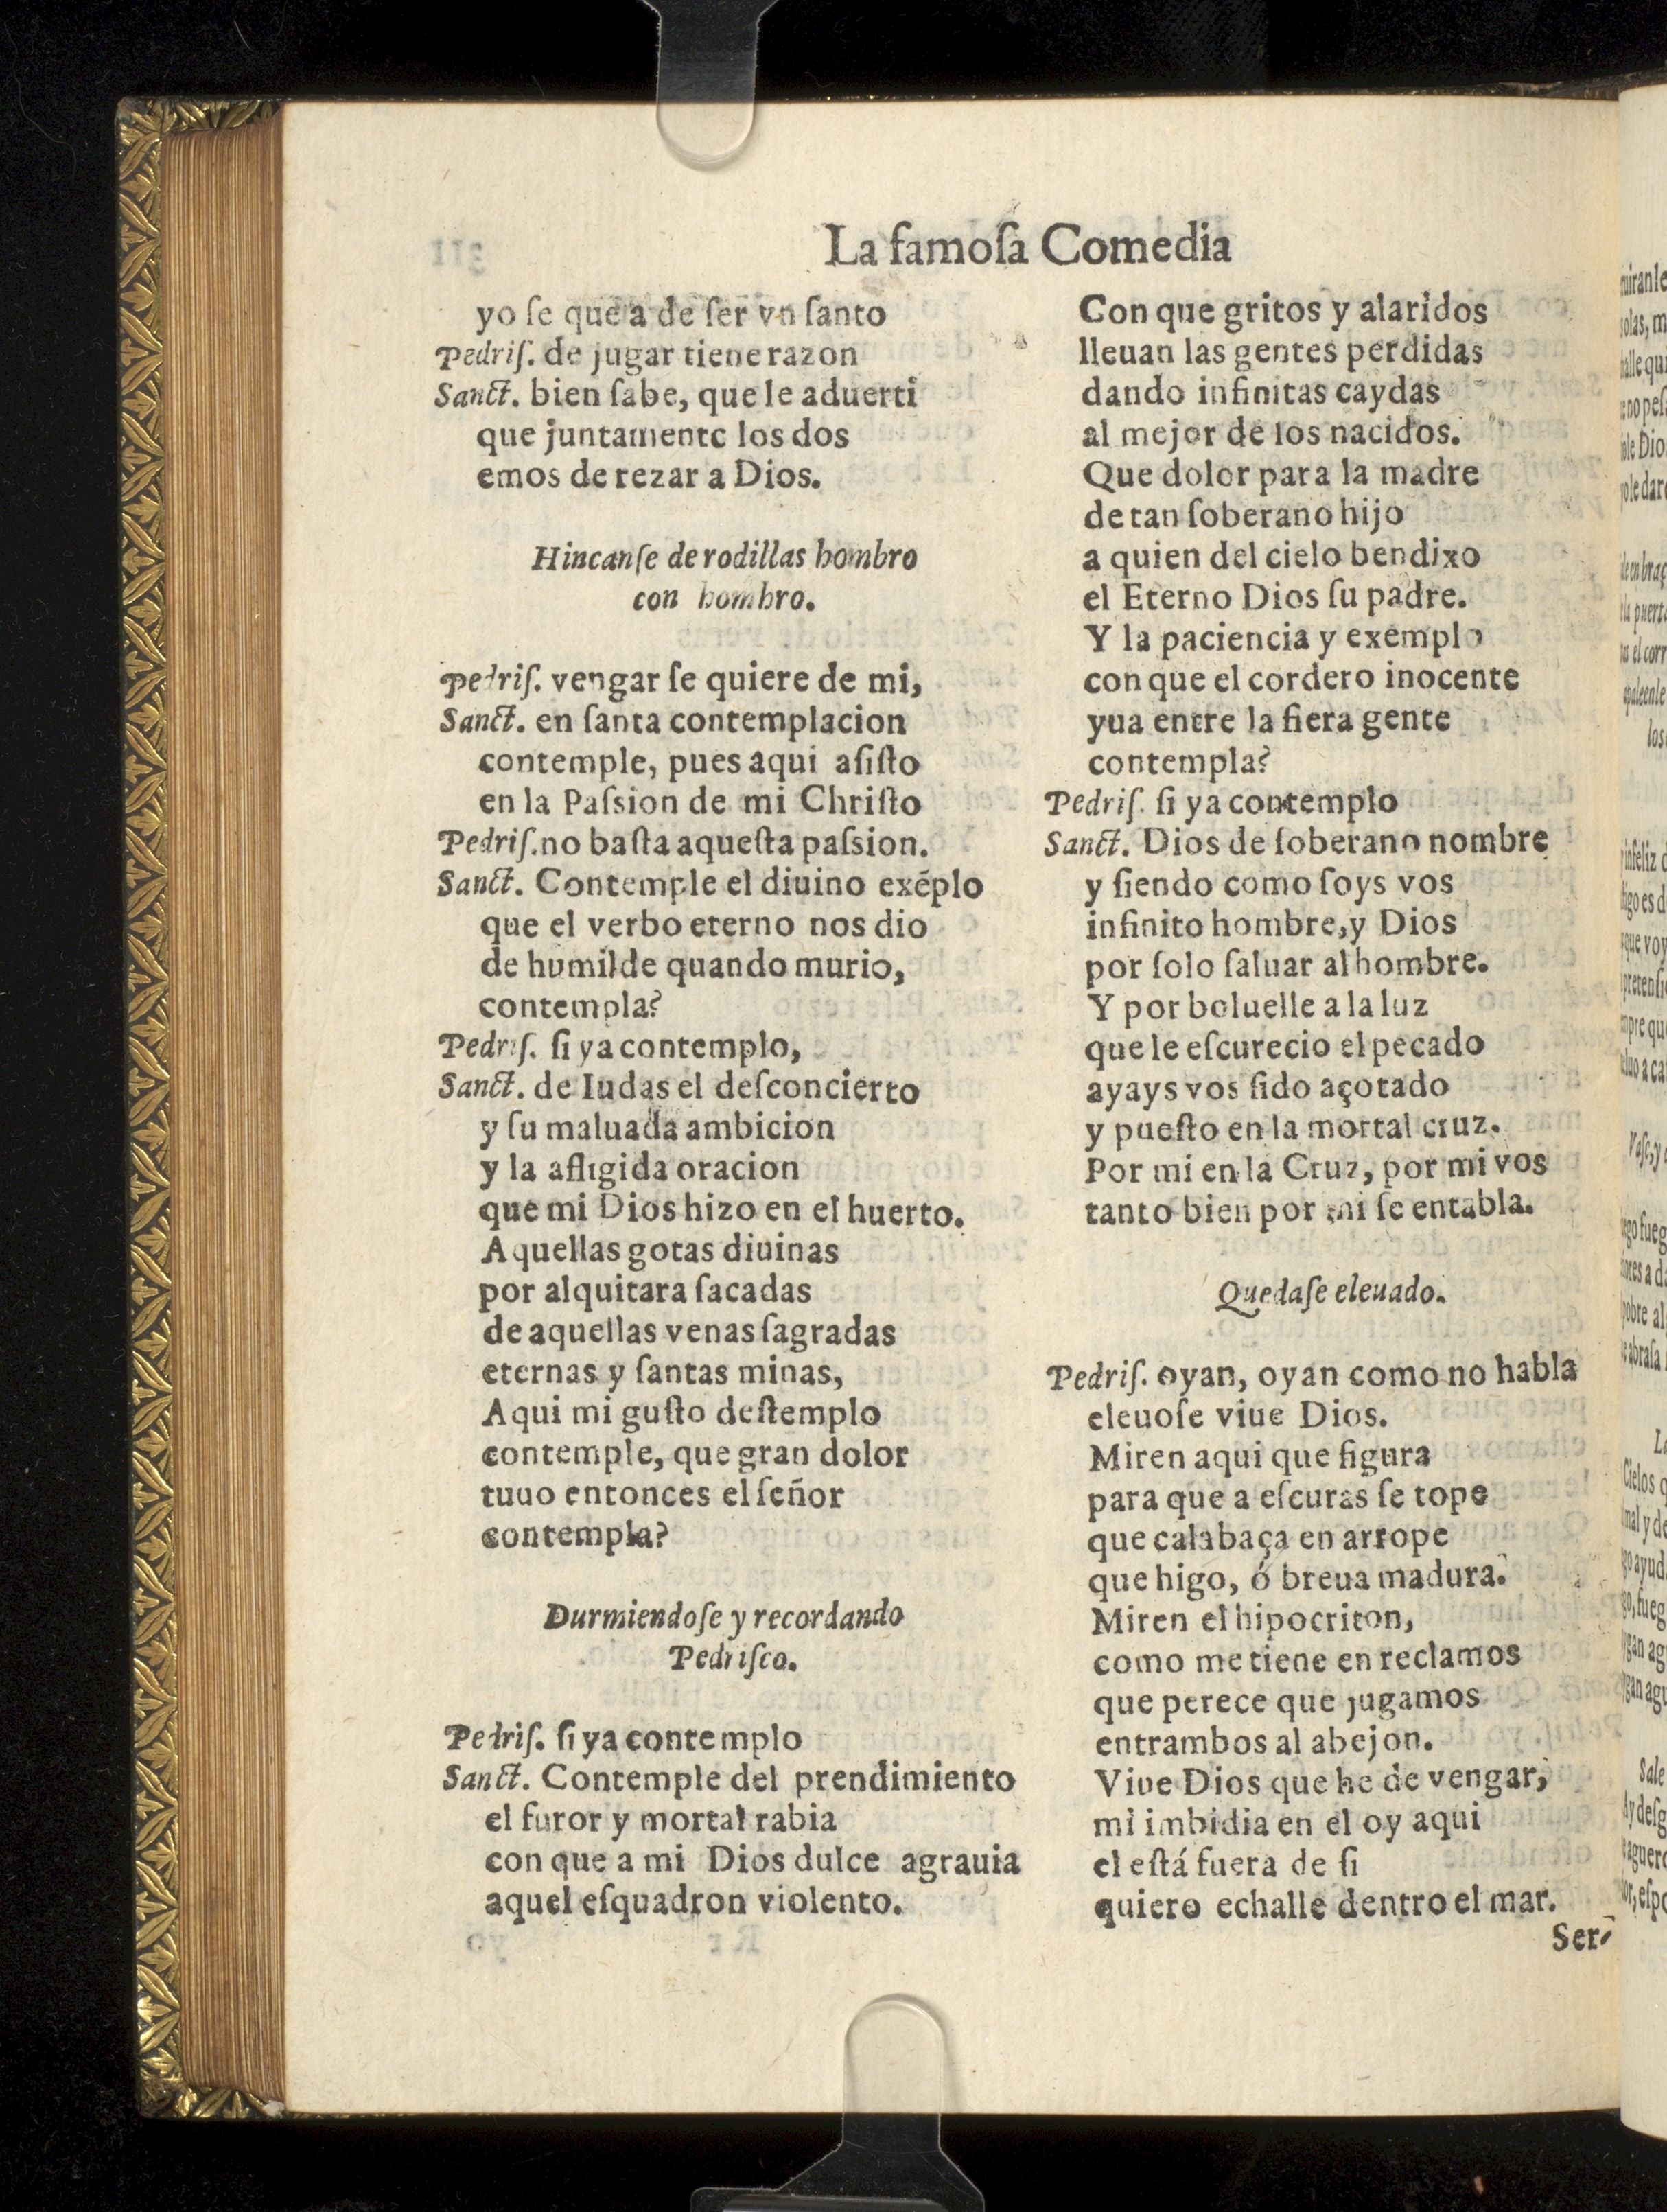 La famoſa Comedia
yo ſe que a de ſer vn ſanto
Pedriſ. de jugar tiene razon
Sanct. bien ſabe, que le aduerti
que juntamente los dos
emos de rezar a Dios.
Hincanſe de rodillas hombro
con hombro.
Pedriſ. vengar ſe quiere de mi,
Sanct. en ſanta contemplacion
contemple, pues aqui aſiſto
en la Paſsion de mi Chriſto
Pedriſ. no baſta aqueſta paſsion.
Sanct. Contemple el diuino exẽplo
que el verbo eterno nos dio
de humilde quando murio,
contempla?
Pedriſ. ſi ya contemplo,
Sanct. de Iudas el deſconcierto
y ſu maluada ambicion
y la afligida oracion
que mi Dios hizo en el huerto.
Aquellas gotas diuinas
por alquitara ſacadas
de aquellas venas ſagradas
eternas y ſantas minas,
Aqui mi guſto deſtemplo
contemple, que gran dolor
tuuo entonces el ſeñor
contempla?
Durmiendoſe y recordando
Pedriſco.
Pedriſ. ſi ya contemplo
Sanct. Contemple del prendimiento
el furor y mortal rabia
con que a mi Dios dulce agrauia
aquel eſquadron violento.
Con que gritos y alaridos
lleuan las gentes perdidas
dando infinitas caydas
al mejor de los nacidos.
Que dolor para la madre
de tan ſoberano hijo
a quien del cielo bendixo
el Eterno Dios ſu padre.
Y la paciencia y exemplo
con que el cordero inocente
yua entre la fiera gente
contempla?
Pedriſ. ſi ya contemplo
Sanct. Dios de ſoberano nombre
y ſiendo como ſoys vos
infinito hombre, y Dios
por ſolo ſaluar al hombre.
Y por boluelle a la luz
que le eſcurecio el pecado
ayays vos ſido açotado
y pueſto en la mortal cruz.
Por mi en la Cruz, por mi vos
tanto bien por mi ſe entabla.
Quedaſe eleuado.
Pedriſ. oyan, oyan como no habla
eleuoſe viue Dios.
Miren aqui que figura
para que a eſcuras ſe tope
que calabaça en arrope
que higo, ó breua madura.
Miren el hipocriton,
como me tiene en reclamos
que perece que jugamos
entrambos al abejon.
Viue Dios que he de vengar,
mi imbidia en el oy aqui
el eſtá fuera de ſi
quiero echalle dentro el mar.
Ser-